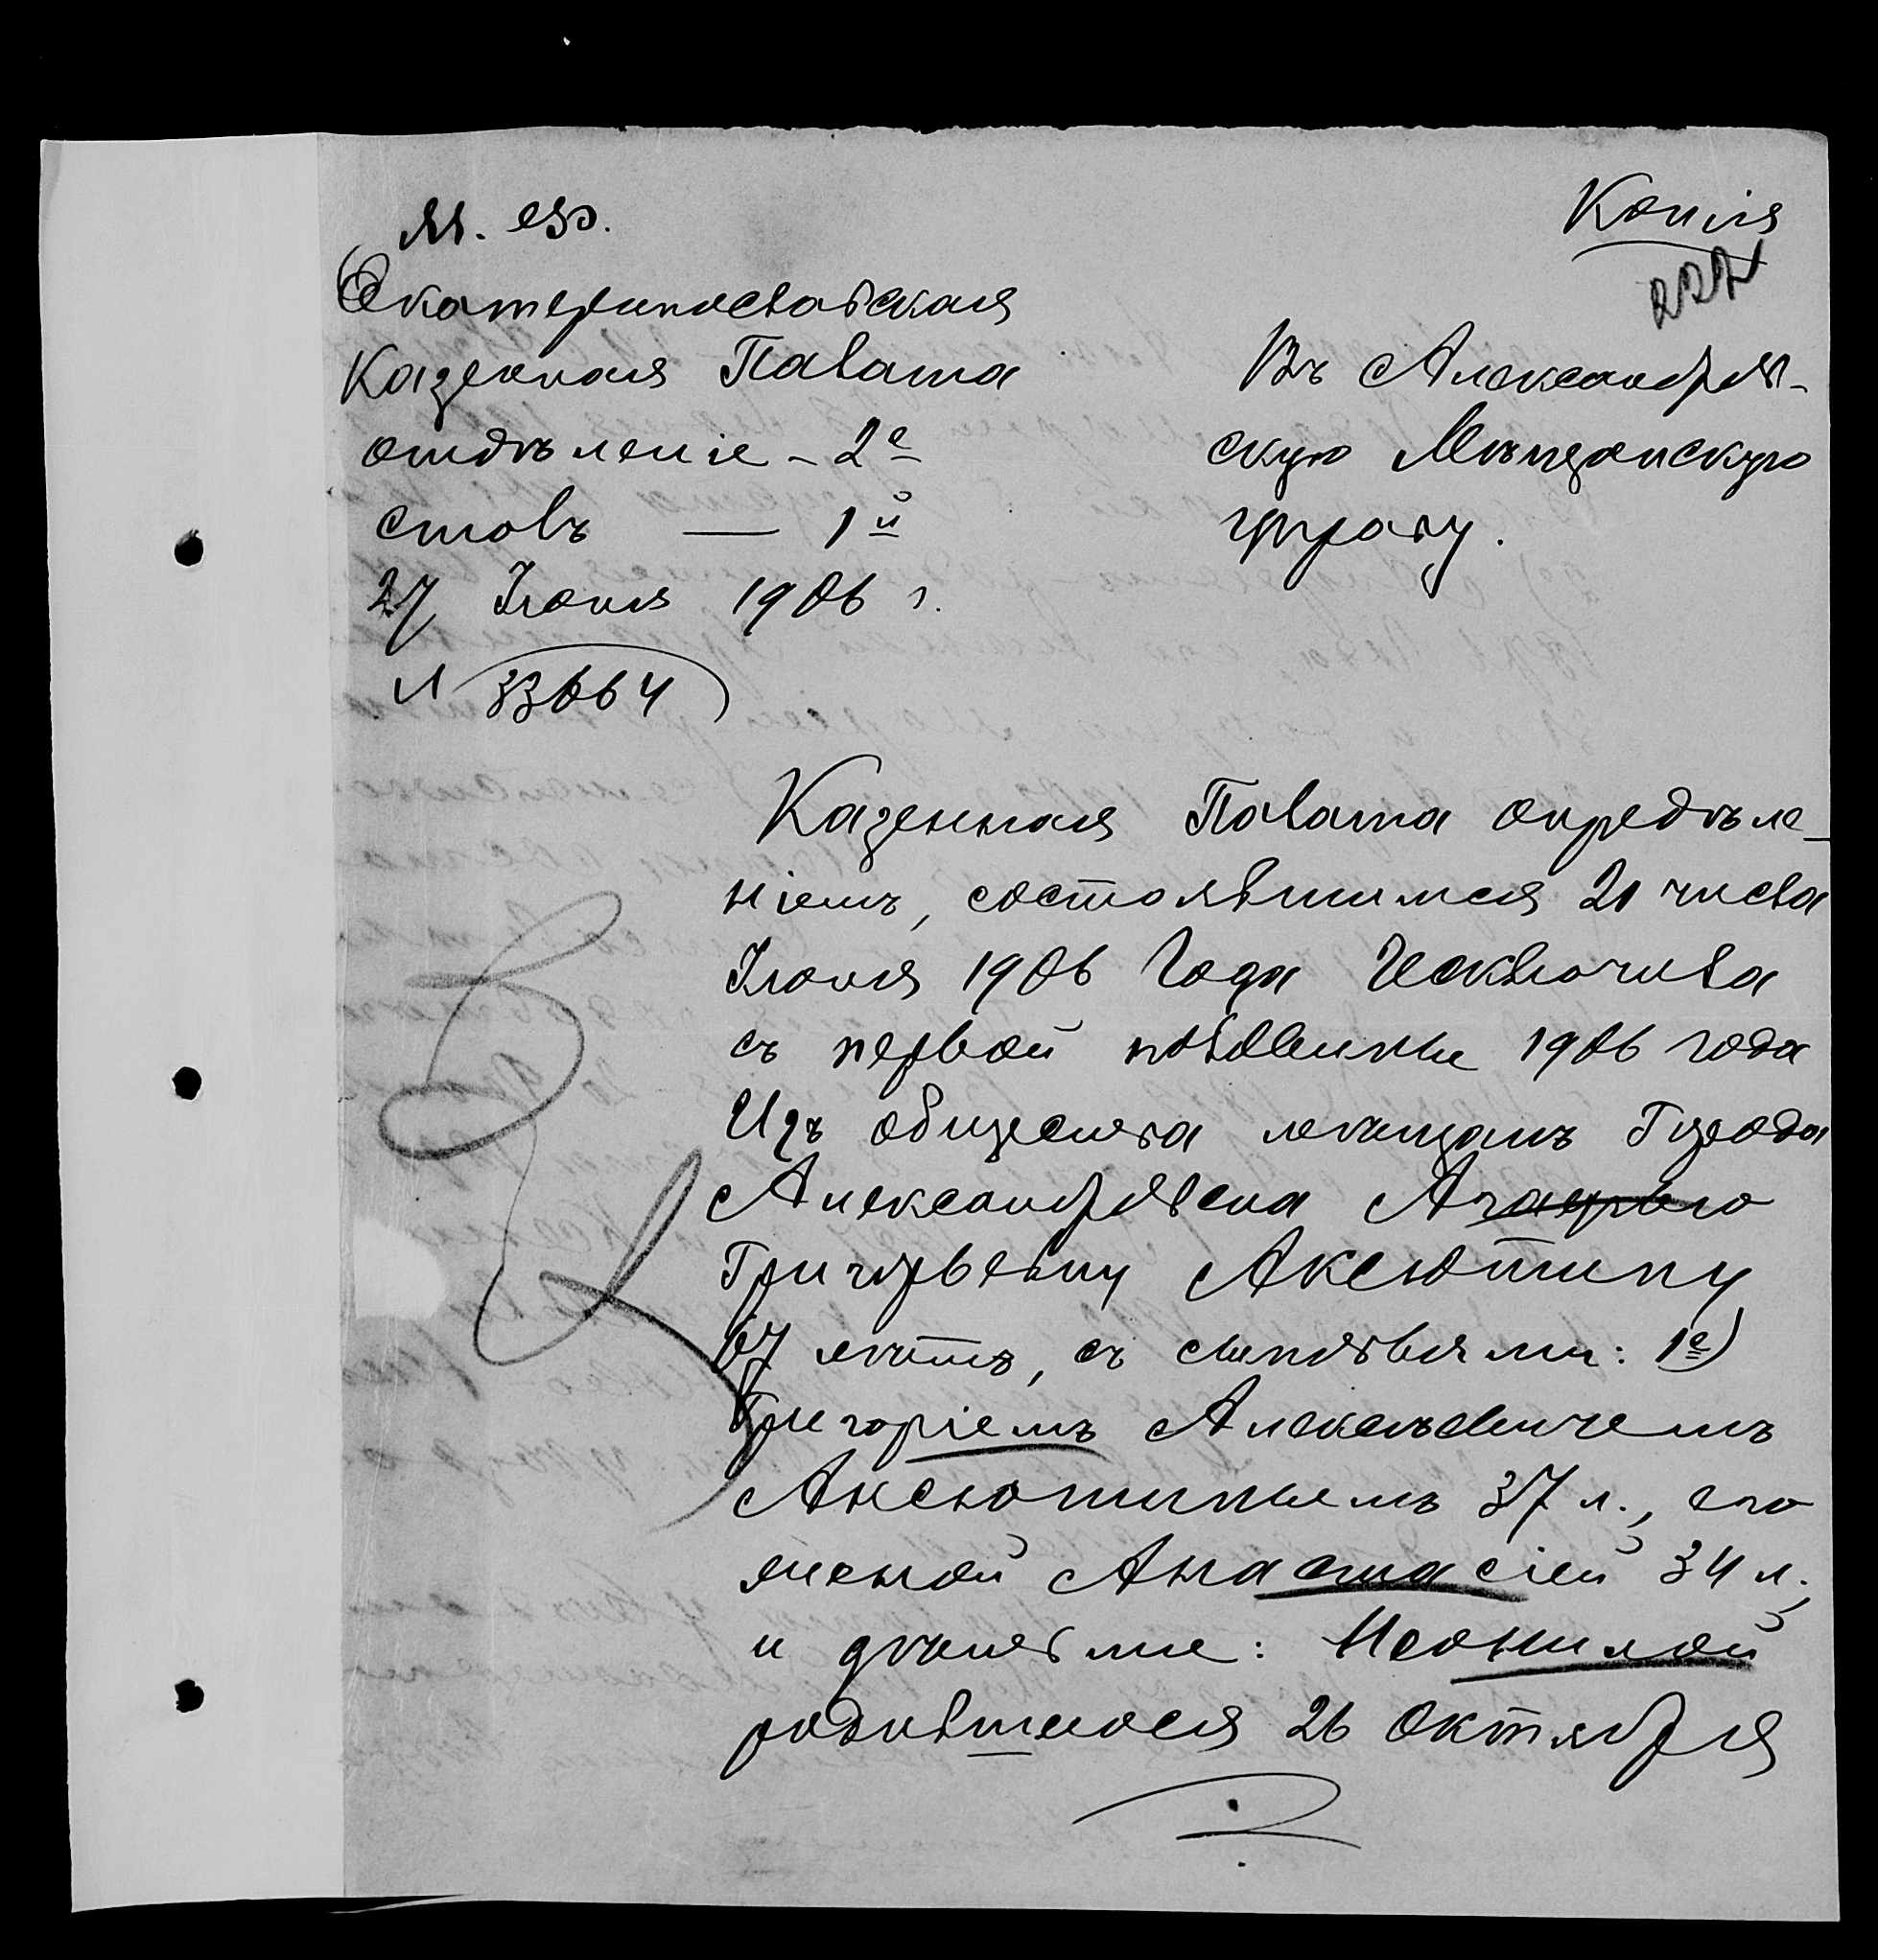 М. Ф.
Копія
Екатеринославская
Казенная Палата
отдѣленіе - 2е
столъ — 1й
27 Іюня 1906 г.
№ 33664
Въ Александров-
скую Мѣщанскую
управу.
Казенная Палата опредѣле-
ніемъ, состоявшимся 21 числа
Іюня 1906 года исключила
съ первой половины 1906 года
Изъ общества мѣщанъ города
Александровска
Григорьевну Аксютину
67 лѣтъ, съ сыновьями: 1е)
Григоріемъ Алексѣевичемъ
Аксютинымъ 37 л., его
женой Анастасіей 34 л.,
и дѣтьми: Неонилой
родившеюся 26 Октября